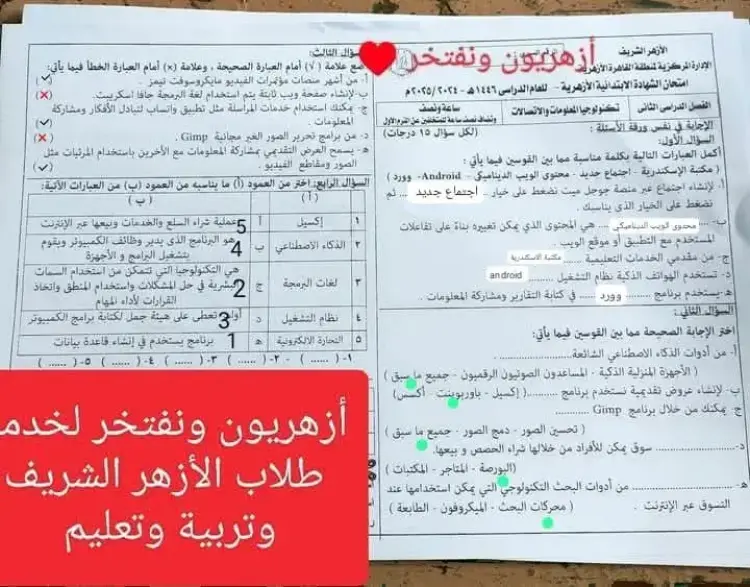 أزهريون ونفتخر
الأزهر الشريف
الإدارة المركزية لمنطقة القاهرة الأزهرية
امتحان الشهادة الابتدائية الأزهرية - للعام الدراسى ١٤٤٦هـ - ٢٠٢٤ / ٢٠٢٥م
الفصل الدراسى الثانى
تكنولوجيا المعلومات والاتصالات
ساعة ونصف
الإجابة في نفس ورقة الأسئلة :
(لكل سؤال ١٥ درجات)
السؤال الأول:
أكمل العبارات التالية بكلمة مناسبة مما بين القوسين فيما يأتي :
( مكتبة الإسكندرية - اجتماع جديد - محتوى الويب الديناميكي - Android - وورد )
أ- لإنشاء اجتماع عبر منصة جوجل ميت نضغط على خيار .. اجتماع جديد ... ثم
نضغط على الخيار الذى يناسبك .
ب- محتوى الويب الديناميكي ... هي المحتوى الذي يمكن تغييره بناءً على تفاعلات
المستخدم مع التطبيق أو موقع الويب .
ج- من مقدمي الخدمات التعليمية ... مكتبة الاسكندرية
د- تستخدم الهواتف الذكية نظام التشغيل ....... android
هـ- يستخدم برنامج ... وورد ... في كتابة التقارير ومشاركة المعلومات .
السؤال الثاني:
اختر الإجابة الصحيحة مما بين القوسين فيما يأتي:
أ- من أدوات الذكاء الاصطناعي الشائعة...................
( الأجهزة المنزلية الذكية - المساعدون الصوتيون الرقميون - جميع ما سبق )
ب- لإنشاء عروض تقديمية نستخدم برنامج .........( إكسيل - باوربوينت - أكسس)
ج- يمكنك من خلال برنامج Gimp ..........
( تحسين الصور - دمج الصور - جميع ما سبق )
د-................... سوق يمكن للأفراد من خلالها شراء الحصص و بيعها.
(البورصة - المتاجر - المكتبات )
هـ- ................... من أدوات البحث التكنولوجي التي يمكن استخدامها عند
التسوق عبر الإنترنت . ( محركات البحث - الميكروفون - الطابعة )
سؤال الثالث:
ضع علامة (√) أمام العبارة الصحيحة ، وعلامة (×) أمام العبارة الخطأ فيما يأتي:
أ- من أشهر منصات مؤتمرات الفيديو مايكروسوفت تيمز . (✓)
ب- لإنشاء صفحة ويب ثابتة يتم استخدام لغة البرمجة جافا اسكريبت. (×)
ج- يمكنك استخدام خدمات المراسلة مثل تطبيق واتساب لتبادل الأفكار ومشاركة
المعلومات . (✓)
د- من برامج تحرير الصور الغير مجانية Gimp . (×)
هـ- يسمح العرض التقديمي بمشاركة المعلومات مع الآخرين باستخدام المرئيات مثل
الصور ومقاطع الفيديو . (✓)
السؤال الرابع: اختر من العمود (أ) ما يناسبه من العمود (ب) من العبارات الآتية:
( أ ) ( ب )
١ إكسيل أ 5 عملية شراء السلع والخدمات وبيعها عبر الإنترنت
٢ الذكاء الاصطناعي ب 4 هو البرنامج الذى يدير وظائف الكمبيوتر ويقوم
بتشغيل البرامج و الأجهزة
٣ لغات البرمجة ج 2 هي التكنولوجيا التي تتمكن من استخدام السمات
البشرية في حل المشكلات واستخدام المنطق واتخاذ
القرارات لأداء المهام
٤ نظام التشغيل د 3 تعطى على هيئة جمل لكتابة برامج الكمبيوتر
٥ التجارة الالكترونية هـ 1 برنامج يستخدم في إنشاء قاعدة بيانات
١- (......) ٢- (......) ٣- (......) ٤- (......) ٥- (......)
أزهريون ونفتخر لخدم
طلاب الأزهر الشريف
وتربية وتعليم